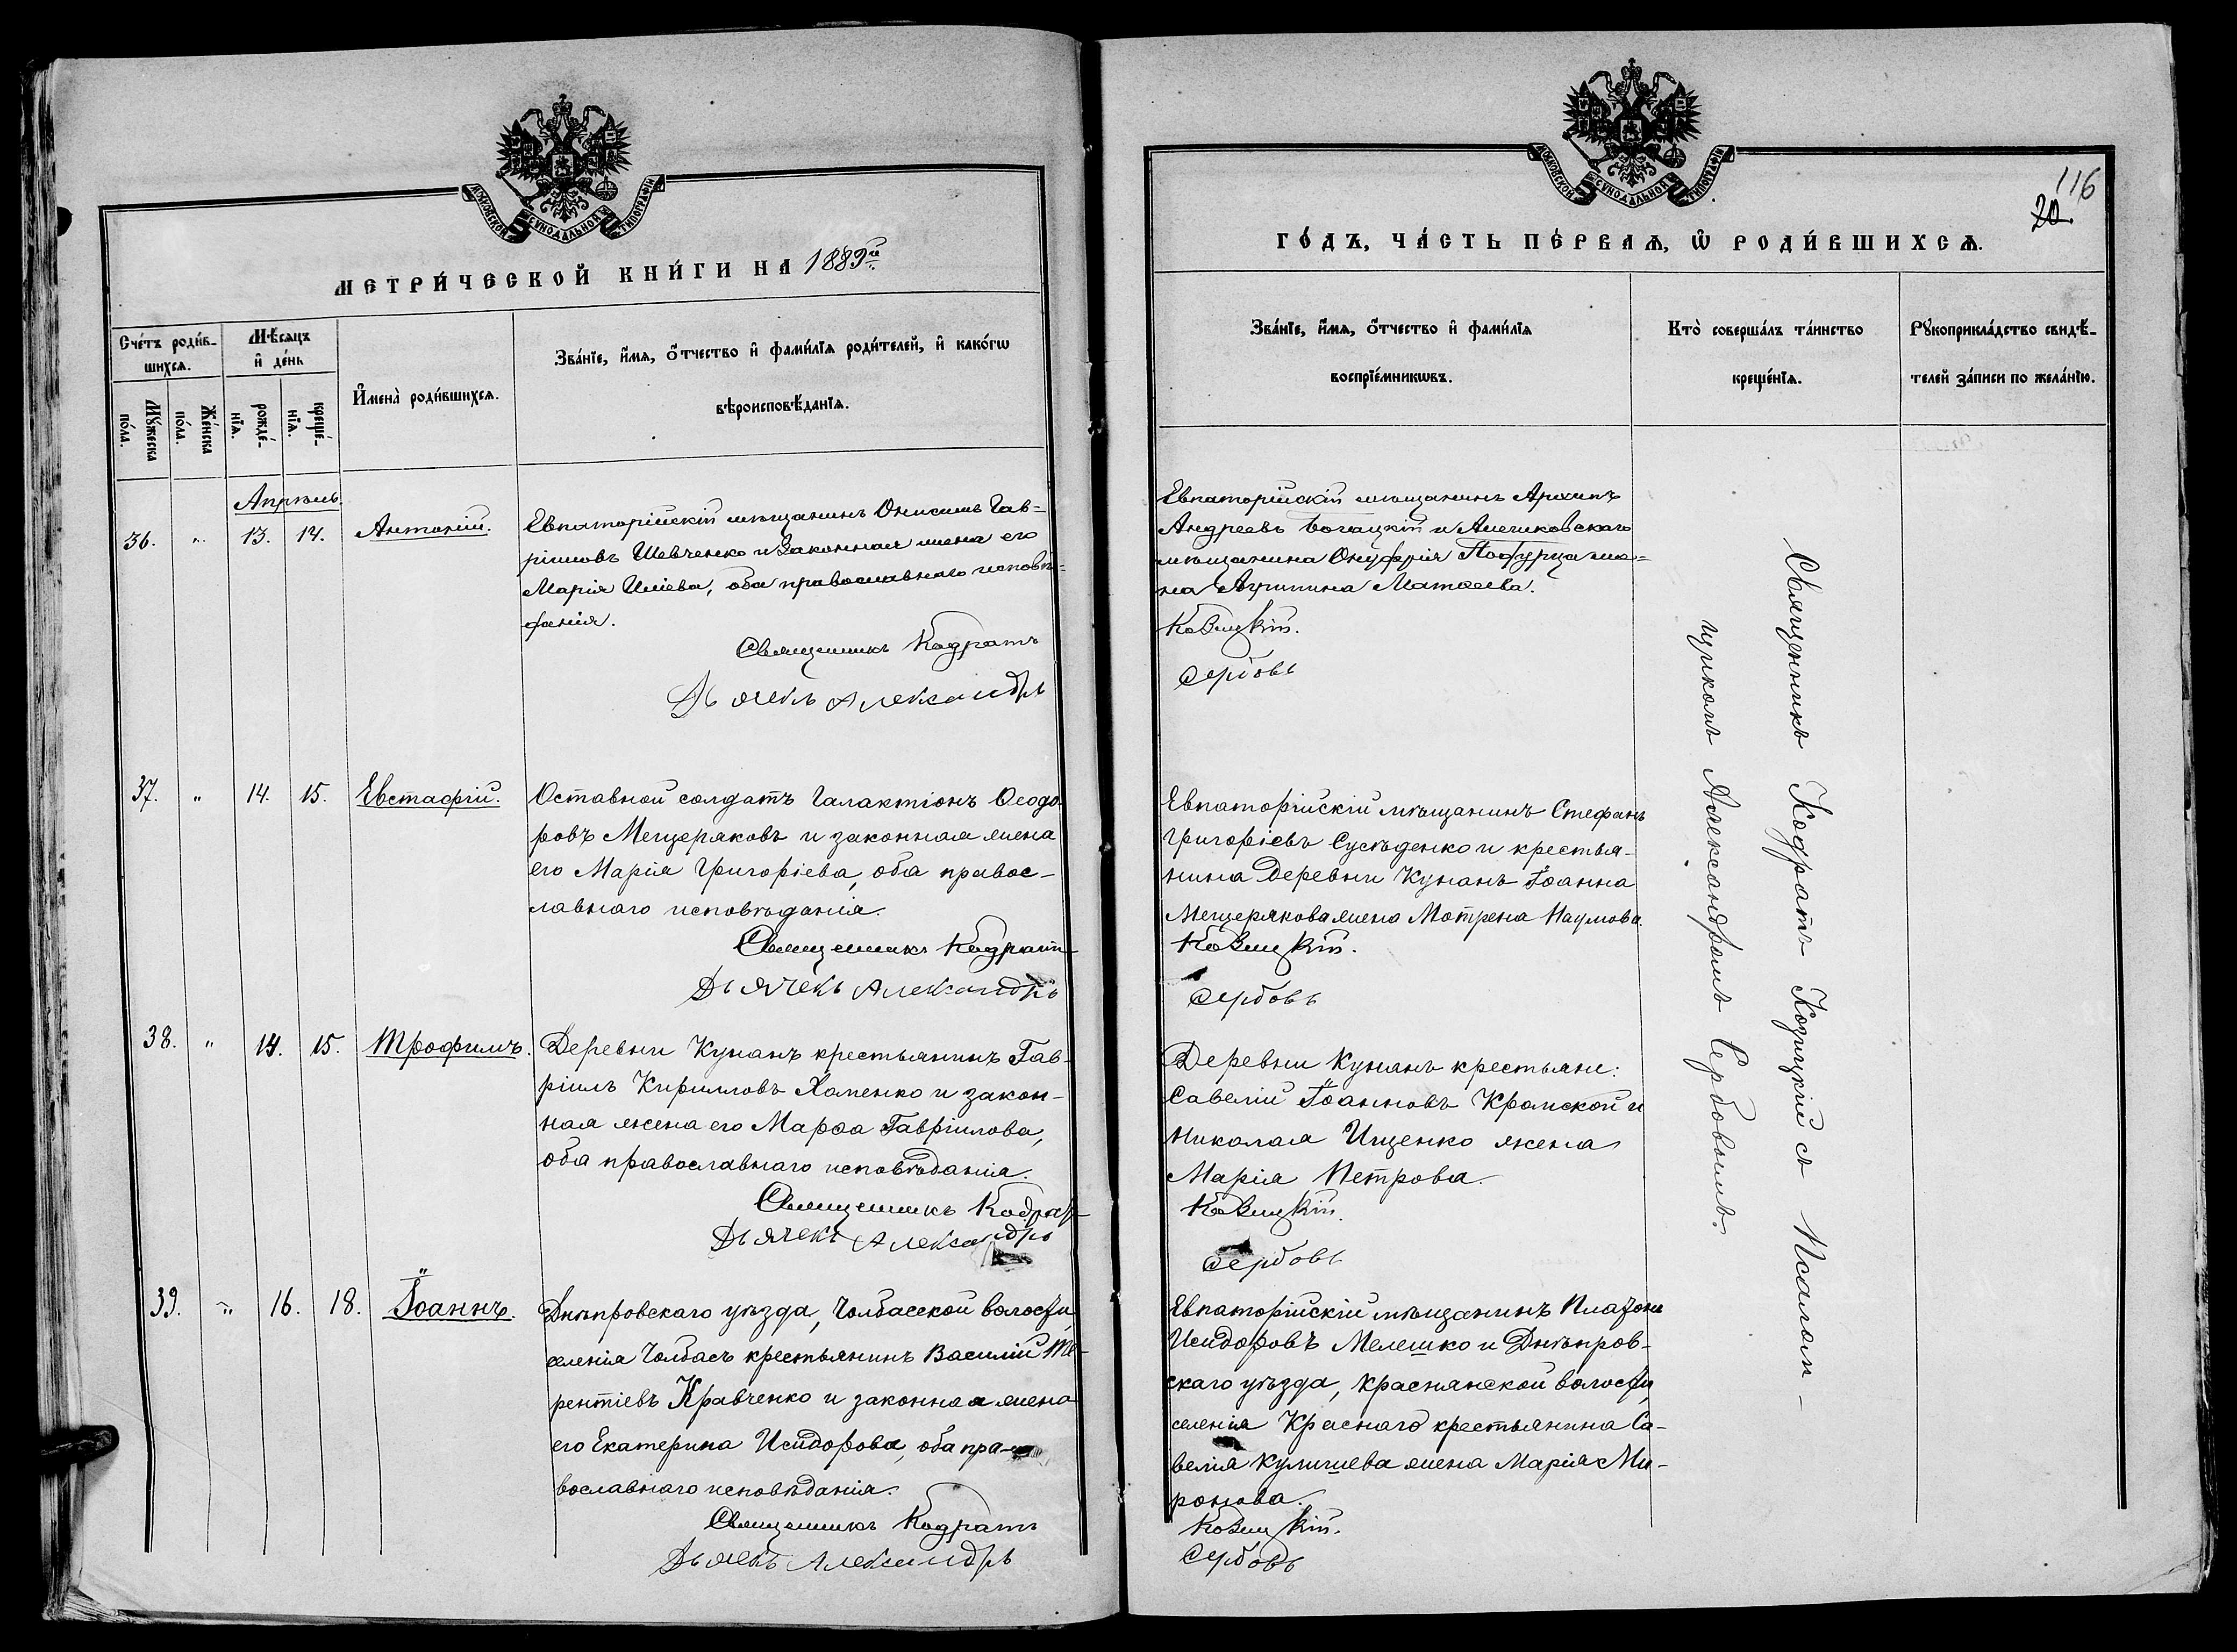 МОСКОВСКОЙ СѴНОДАЛЬНОЙ ТИПОГРАФІИ
МЕТРИ́ЧЕСКОЙ КНИ́ГИ НА 1889й
Сче́тъ роди́в-
шихсѧ.
Мѣ́сѧцъ
и҆ де́нь
Мꙋ́жеска
по́ла.
Же́нска
по́ла.
рожде́-
нїѧ.
креще́-
нїѧ.
И҆мена̀ роди́вшихсѧ.
Зва́нїе, и҆́мѧ, ѻ҆́тчество и҆ фами́лїѧ роди́телей, и҆ како́гѡ
вѣроисповѣ́данїѧ.
Апрѣль.
36. " 13. 14. Антоній.
Евпаторійскій мѣщанинъ Онисимъ Гав-
ріиловъ Шевченко и Законная жена его
Марія Иліева, оба православнаго исповѣ-
данія.
Священникъ Кодратъ
Дьячекъ Александръ
37. " 14. 15. Евстафій.
Оставной солдатъ Галактіонъ Ѳеодо-
ровъ Мещеряковъ и законная жена
его Марія Григоріева, оба правос-
лавнаго исповѣданія.
Священникъ Кодратъ
Дьячекъ Александръ
38. " 14. 15. Трофимъ.
Деревни Кунанъ крестьянинъ Гав-
ріилъ Кирилловъ Хаменко и закон-
ная жена его Марѳа Гавріилова,
оба православнаго исповѣданія.
Священникъ Кодратъ
Дьячекъ Александръ
39. " 16. 18. Іоаннъ.
Днѣпровскаго уѣзда, Чолбасской волости,
селенія Чолбасъ крестьянинъ Василій Те-
рентіевъ Кравченко и законная жена
его Екатерина Исидорова, оба пра-
вославнаго исповѣданія.
Священникъ Кодратъ
Дьячекъ Александръ
МОСКОВСКОЙ СѴНОДАЛЬНОЙ ТИПОГРАФІИ
116
20.
ГО́ДЪ, ЧА́СТЬ ПЕ́РВАѦ, Ѡ҆ РОДИ́ВШИХСѦ.
Зва́нїе, и҆́мѧ, ѻ҆́тчество и҆ фами́лїѧ
воспрїе́мникѡвъ.
Кто̀ соверша́лъ та́инство
креще́нїѧ.
Рꙋкоприкла́дство свидѣ́-
телей за́писи по жела́нїю.
Евпаторійскій мѣщанинъ Архипъ
Андреевъ Богацкій и Алешковскаго
мѣщанина Онуфрія жe-
на Агрипина Матѳеева.
Козицкій.
Сербовъ
Евпаторійскій мѣщанинъ Стефанъ
Григоріевъ Сусѣденко и крестья-
нина Деревни Кунанъ Іоанна
Мещерякова жена Мотрена Наумова.
Козицкій.
Сербовъ
Деревни Кунанъ крестьяни:
Савелій Іоанновъ Крамской и
Николая Ищенко жена
Марія Петрова.
Козицкій.
Сербовъ
Евпаторійскій мѣщанинъ Платонъ
Исидоровъ Мелешко и Днѣпров-
скаго уѣзда, Краснянской волости,
селенія Краснаго крестьянина Са-
велія Кулишева жена Марія Ми-
ронова.
Козицкій.
Сербовъ
Священникъ Кодратъ Козицкій съ Псалом-
щикомъ Александромъ Сербовымъ.